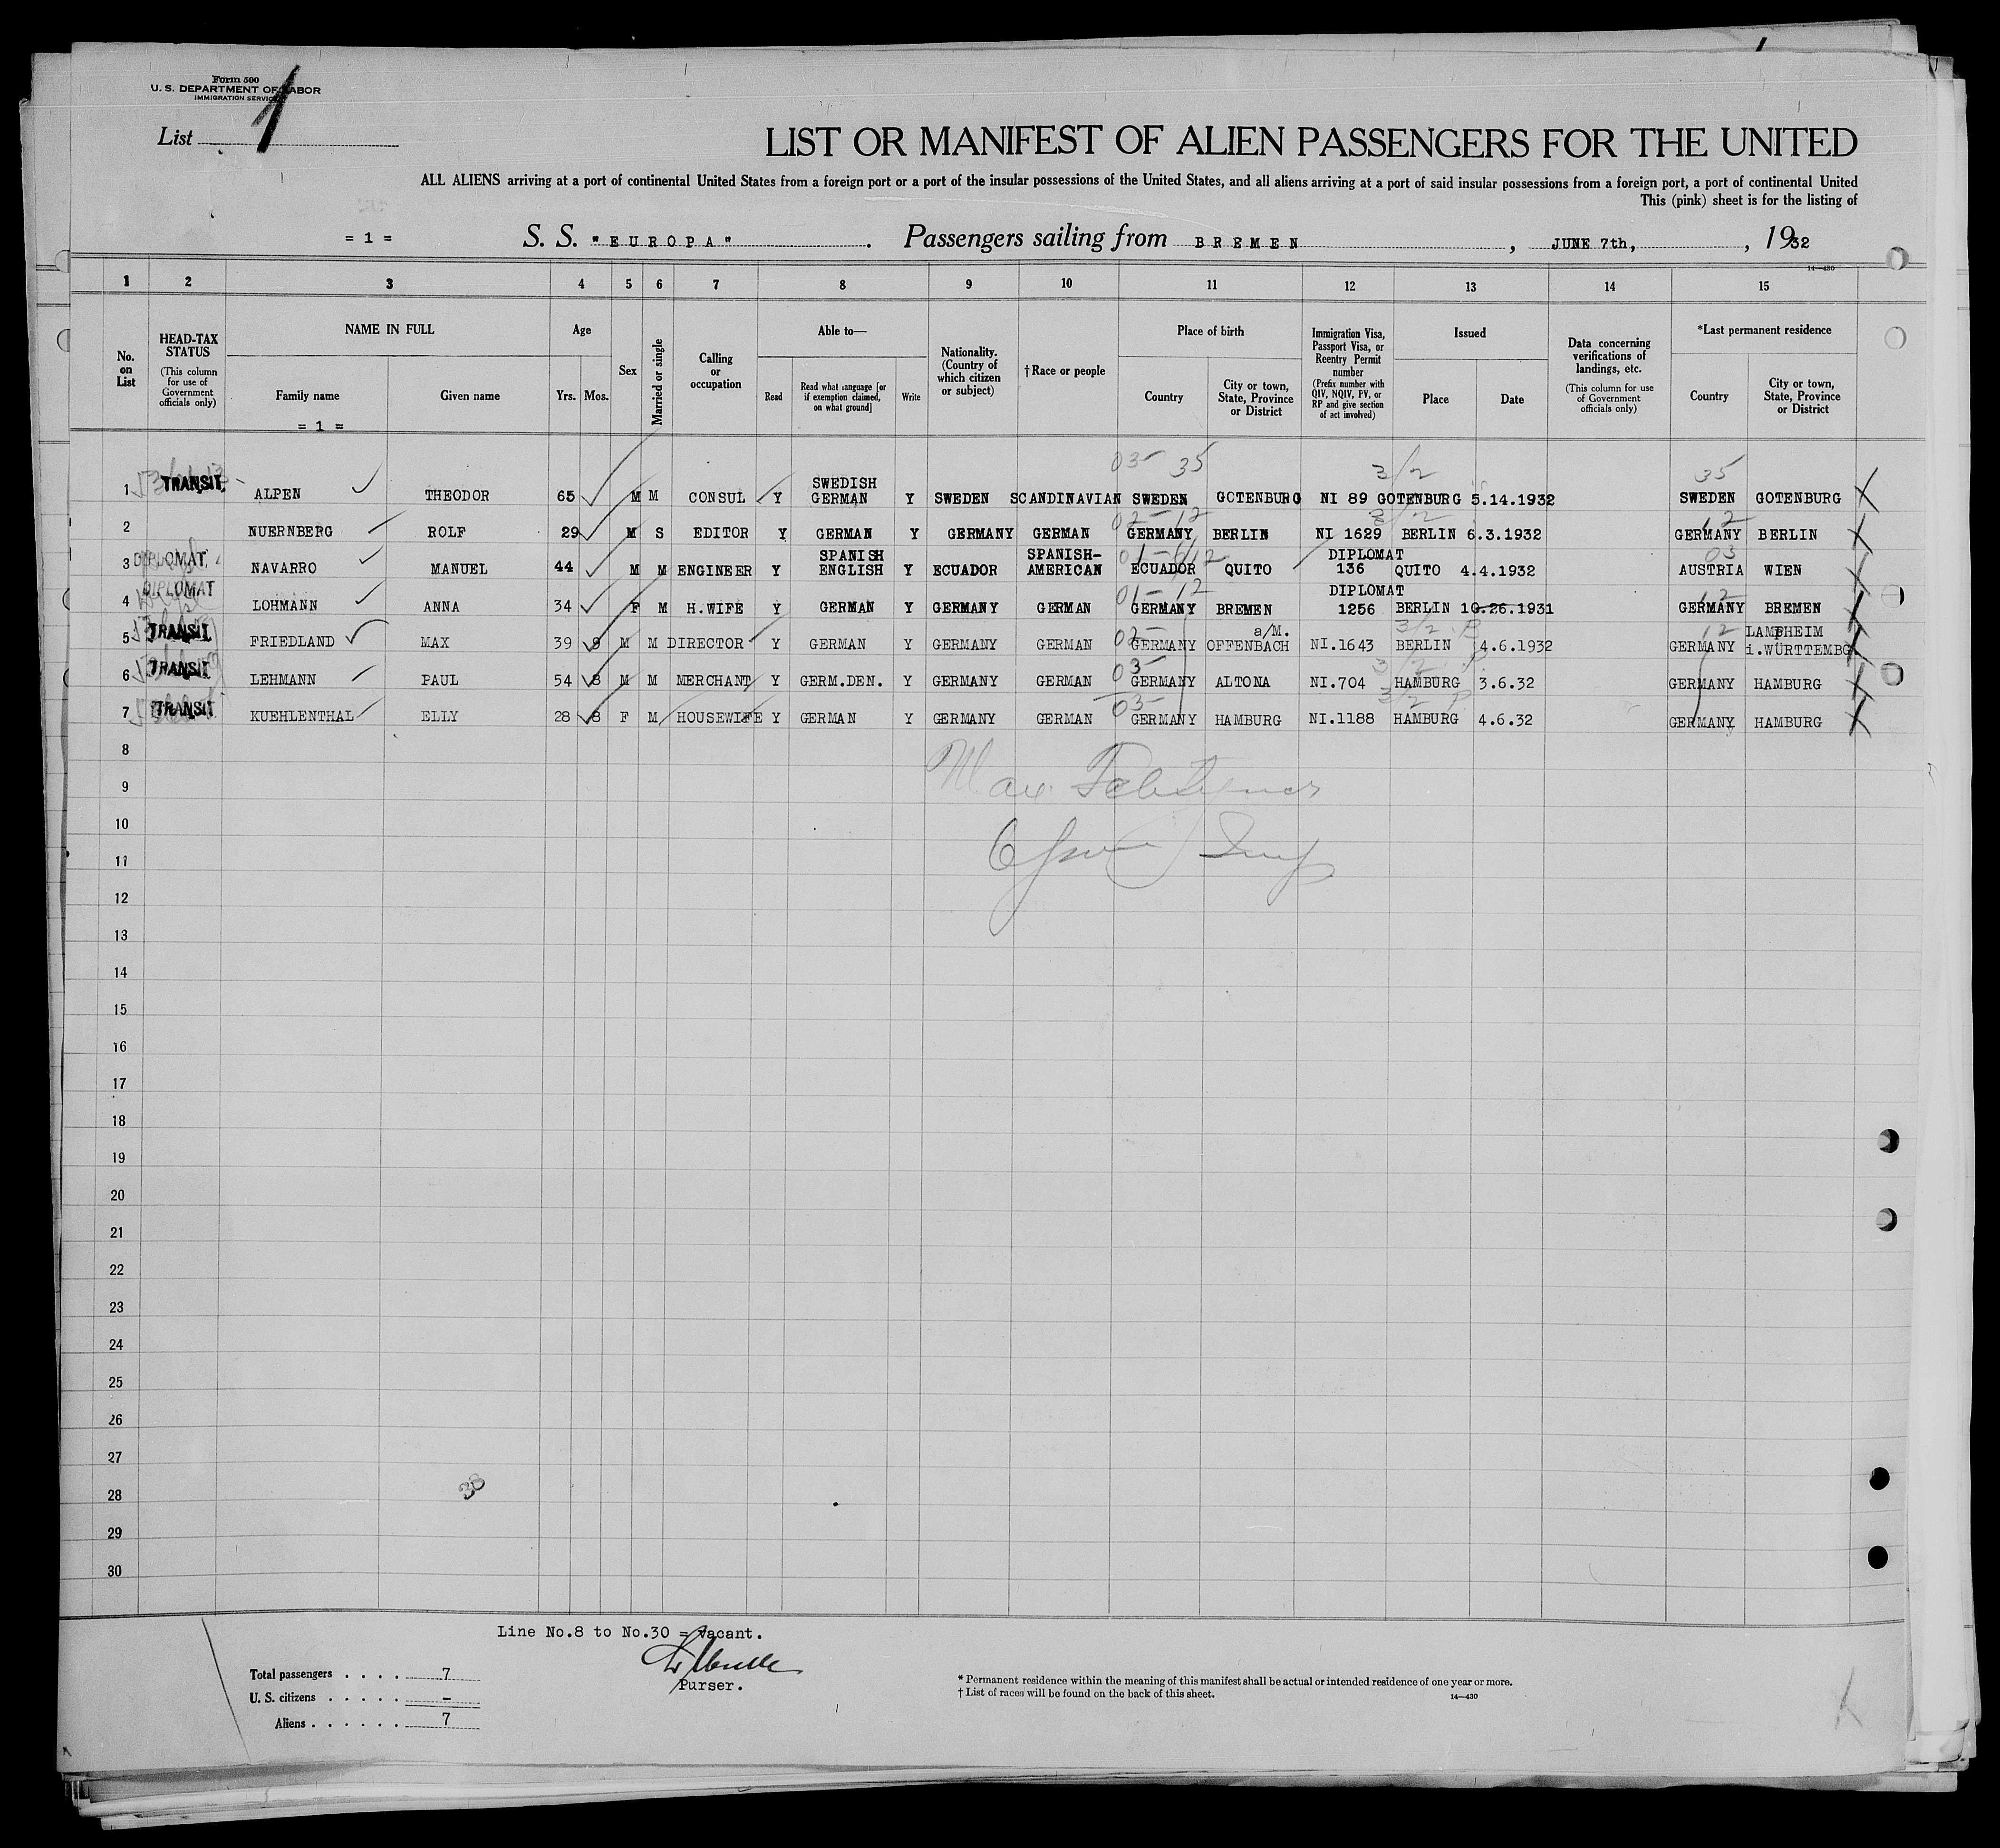 Form 500
U. S. DEPARTMENT OF LABOR
IMMIGRATION SERVICE
List 1
LIST OR MANIFEST OF ALIEN PASSENGERS FOR THE UNITED
ALL ALIENS arriving at a port of continental United States from a foreign port or a port of the insular possessions of the United States, and all aliens arriving at a port of said insular possessions from a foreign port, a port of continental United
This (pink) sheet is for the listing of
= 1 = S. S. "EUROPA" . Passengers sailing from BREMEN , JUNE 7th, , 1932
14—430
1 2 3 4 5 6 7 8 9 10 11 12 13 14 15
No. on List
HEAD-TAX STATUS (This column for use of Government officials only)
NAME IN FULL
Family name
Given name
= 1 =
Age
Yrs. Mos.
Sex
Married or single
Calling or occupation
Able to—
Read
Read what language [or if exemption claimed, on what ground]
Write
Nationality. (Country of which citizen or subject)
†Race or people
Place of birth
Country
City or town, State, Province or District
Immigration Visa, Passport Visa, or Reentry Permit number (Prefix number with QIV, NQIV, PV, or RP and give section of act involved)
Issued
Place
Date
Data concerning verifications of landings, etc. (This column for use of Government officials only)
*Last permanent residence
Country
City or town, State, Province or District
03- 35 3/2 35
1 TRANSIT ALPEN THEODOR 65 M M CONSUL Y SWEDISH GERMAN Y SWEDEN SCANDINAVIAN SWEDEN GOTENBURG NI 89 GOTENBURG 5.14.1932 SWEDEN GOTENBURG
02-12 3/2 12
2 NUERNBERG ROLF 29 M S EDITOR Y GERMAN Y GERMANY GERMAN GERMANY BERLIN NI 1629 BERLIN 6.3.1932 GERMANY BERLIN
03
3 DIPLOMAT NAVARRO MANUEL 44 M M ENGINEER Y SPANISH ENGLISH Y ECUADOR SPANISH-AMERICAN ECUADOR QUITO DIPLOMAT 136 QUITO 4.4.1932 AUSTRIA WIEN
01-12 12
4 DIPLOMAT LOHMANN ANNA 34 F M H.WIFE Y GERMAN Y GERMANY GERMAN GERMANY BREMEN DIPLOMAT 1256 BERLIN 10.26.1931 GERMANY BREMEN
02- 3/2 P 12
5 TRANSIT FRIEDLAND MAX 39 9 M M DIRECTOR Y GERMAN Y GERMANY GERMAN GERMANY OFFENBACH a/M. NI.1643 BERLIN 4.6.1932 GERMANY LAMPHEIM i.WÜRTTEMBG.
03- 3/2 P
6 TRANSIT LEHMANN PAUL 54 8 M M MERCHANT Y GERM.DEN. Y GERMANY GERMAN GERMANY ALTONA NI.704 HAMBURG 3.6.32 GERMANY HAMBURG
03- 3/2 P
7 TRANSIT KUEHLENTHAL ELLY 28 8 F M HOUSEWIFE Y GERMAN Y GERMANY GERMAN GERMANY HAMBURG NI.1188 HAMBURG 4.6.32 GERMANY HAMBURG
8
Max
9
10
11
12
13
14
15
16
17
18
19
20
21
22
23
24
25
26
27
28 38
29
30
Line No.8 to No.30 = Vacant.
Purser.
Total passengers . . . . 7
U. S. citizens . . . . . -
Aliens . . . . . . 7
* Permanent residence within the meaning of this manifest shall be actual or intended residence of one year or more.
† List of races will be found on the back of this sheet.
14—430